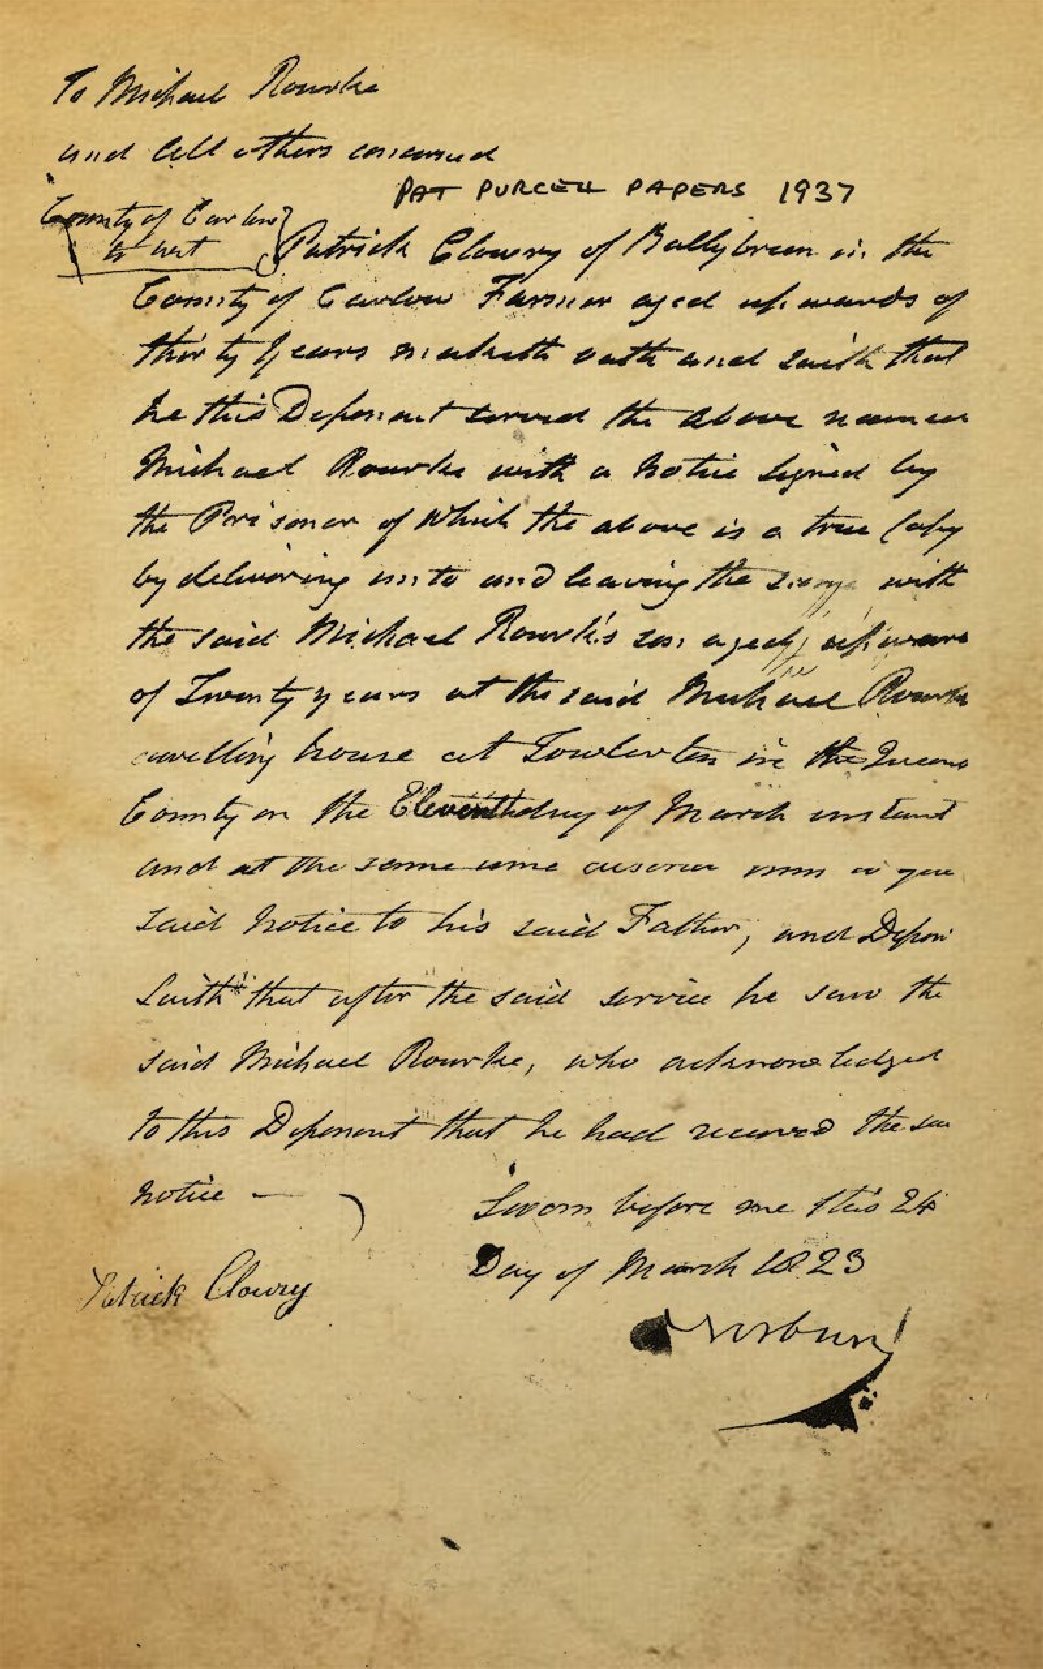 To Michael Rourke
and all others concerned
PAT PURCELL PAPERS 1937
County of Carlow
to wit
Patrick Clowry of Ballybrom in the
County of Carlow Farmer aged upwards of
thirty years maketh oath and saith that
he this Deponent served the above named
Michael Rourke with a notice signed by
the Prisoner of which the above is a true Copy
by delivering unto and leaving the same with
the said Michael Rourke's son aged upwards
of Twenty years at the said Michael Rourke
dwelling house at Towlerton in the Queens
County on the Eleventh day of March instant
and at the same time
said notice to his said Father, and Depon
saith that after the said service he saw the
said Michael Rourke, who acknowledged
to this Deponent that he had received the sai
notice —
Sworn before me this 24
Day of March 1823
Patrick Clowry
Norbury